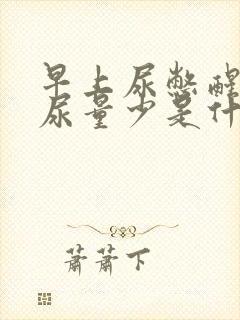 早上尿憋醒
尿量少是什
萧萧下